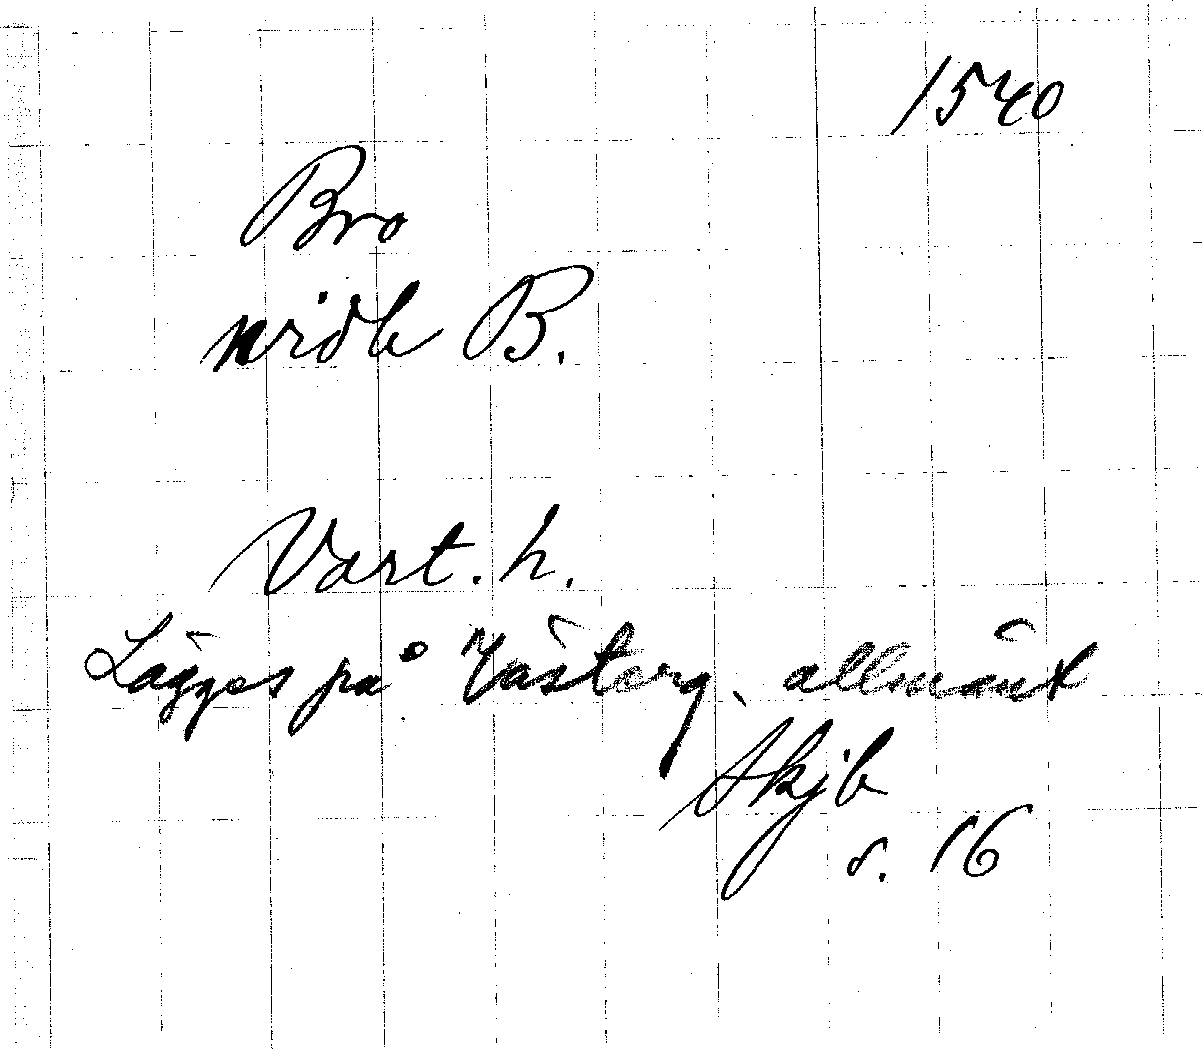 1540
Bro
widh B.
Vart. h.
Lägges på Västerg. allmänt
Skjb
s. 16